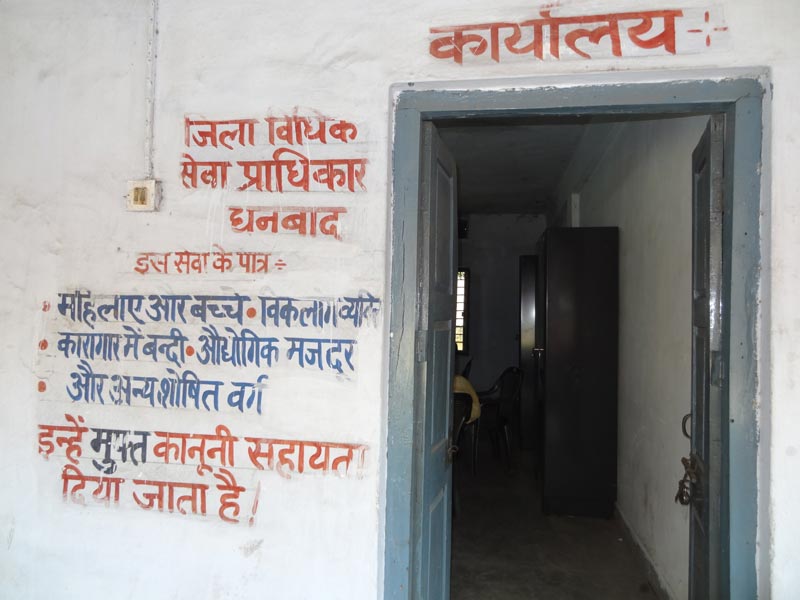 कार्यालय ÷
जिला विधिक
सेवा प्राधिकार
धनबाद
इस सेवा के पात्र ÷
• महिलाए और बच्चे • विकलांग व्यक्ति
• कारागार में बन्दी • औधोगिक मजदूर
• और अन्य शोषित वर्ग
इन्हें मुफ्त कानूनी सहायता
दिया जाता है!